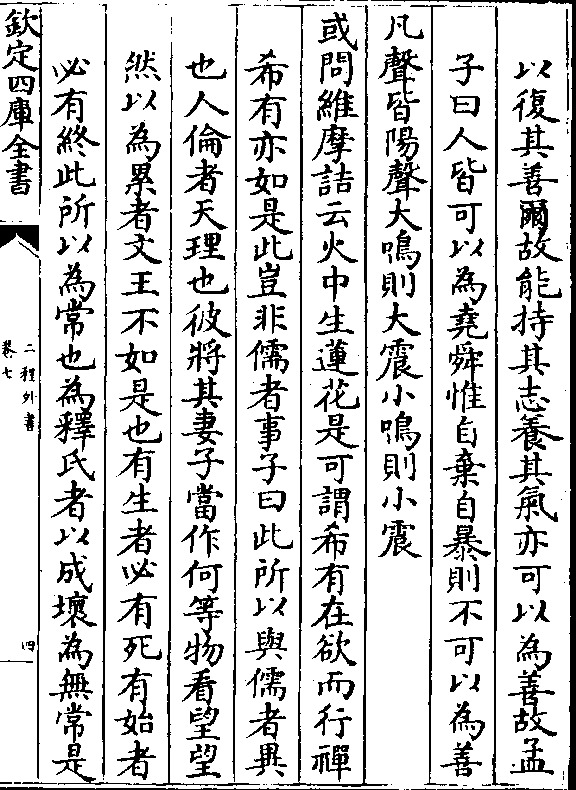 以復其善爾故能持其志養其氣亦可以為善故孟
子曰人皆可以為堯舜惟自棄自暴則不可以為善
凡聲皆陽聲大鳴則大震小鳴則小震
或問維摩詰云火中生蓮花是可謂希有在欲而行禪
希有亦如是此豈非儒者事子曰此所以與儒者異
也人倫者天理也彼將其妻子當作何等物看望望
然以為累者文王不如是也有生者必有死有始者
必有終此所以為常也為釋氏者以成壞為無常是
欽定四庫全書
二程外書
卷七
四